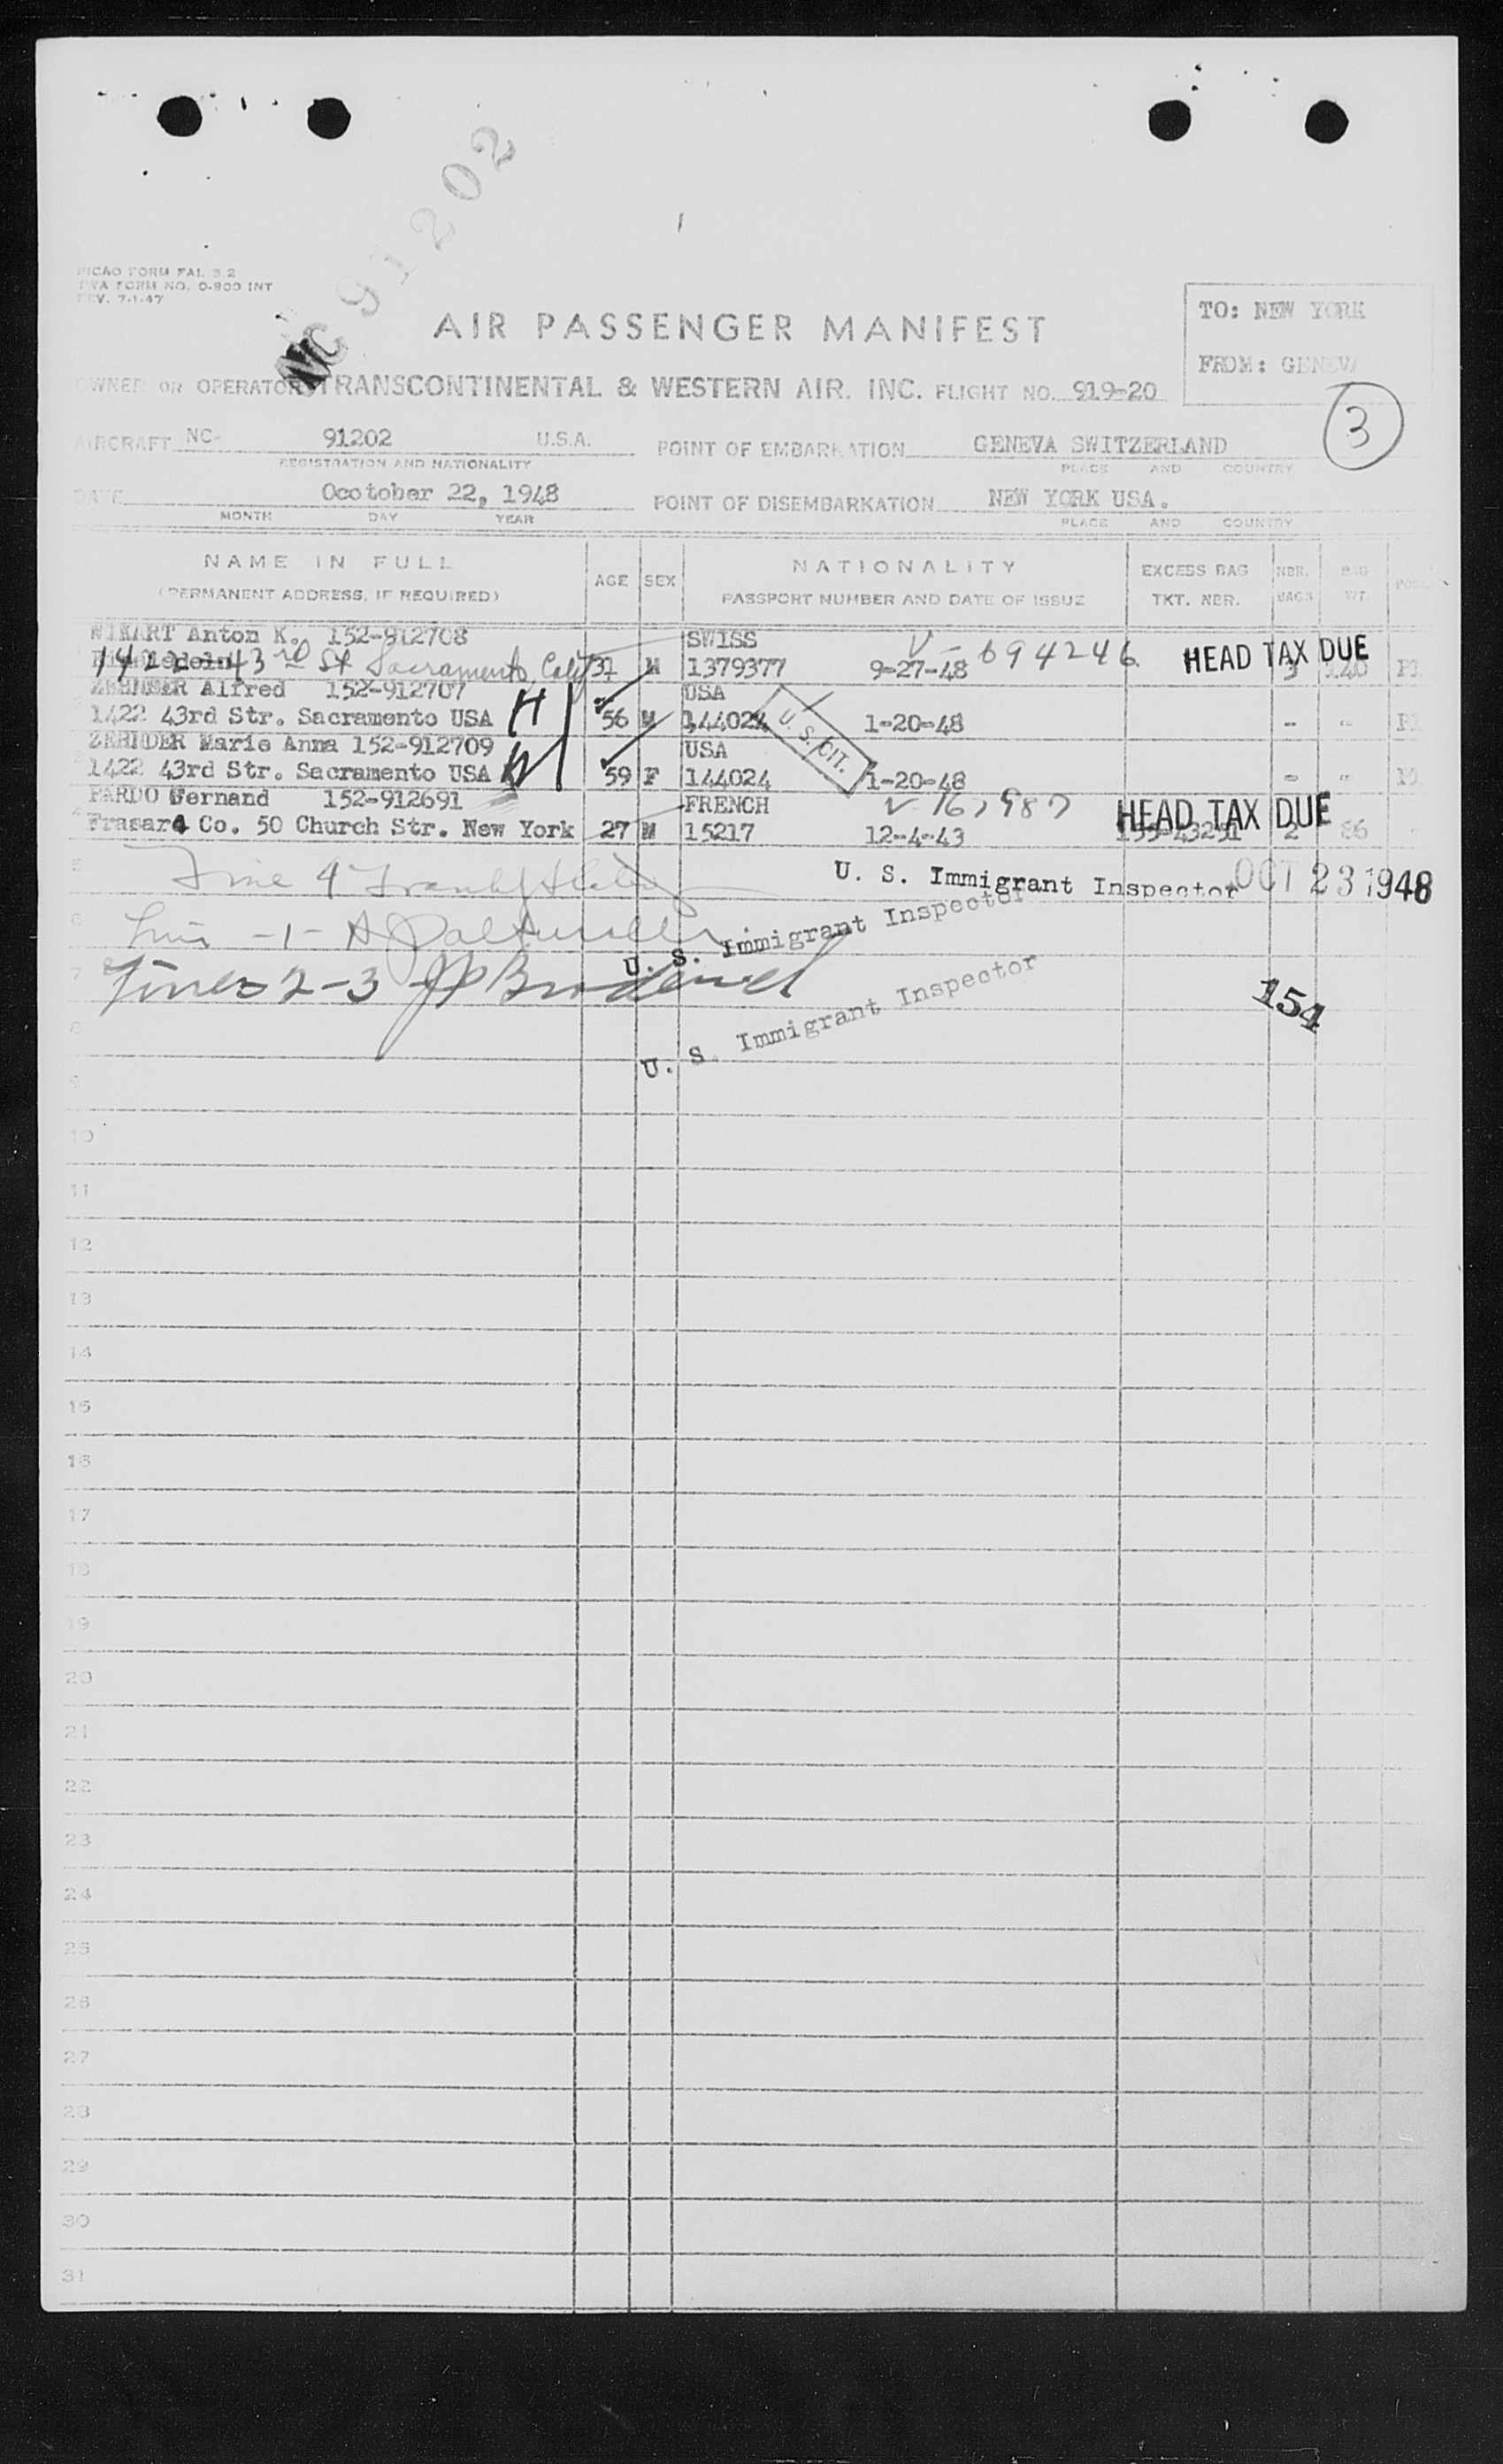 NC 91202
PICAO FORM FAL 3.2
TWA FORM NO. 0-800 INT
REV. 7-1-47
AIR PASSENGER MANIFEST
TO: NEW YORK
FROM: GENEVA
OWNER OR OPERATOR TRANSCONTINENTAL & WESTERN AIR. INC. FLIGHT NO. 919-20
3
AIRCRAFT NC- 91202 U.S.A. POINT OF EMBARKATION GENEVA SWITZERLAND
REGISTRATION AND NATIONALITY PLACE AND COUNTRY
DATE Ocotober 22, 1948 POINT OF DISEMBARKATION NEW YORK USA.
MONTH DAY YEAR PLACE AND COUNTRY
NAME IN FULL AGE SEX NATIONALITY EXCESS BAG NBR. BAG
(PERMANENT ADDRESS, IF REQUIRED) PASSPORT NUMBER AND DATE OF ISSUE TKT. NBR. BAGS WT.
Anton K. 152-912708 SWISS V-694246 HEAD TAX DUE
1422 43rd St Sacramento, Calif 37 M 1379377 9-27-48 3
ZEHNDER Alfred 152-912707 H USA
1422 43rd Str. Sacramento USA 56 M 144024 1-20-48 - -
U.S. CIT.
ZEHNDER Marie Anna 152-912709 W USA
1422 43rd Str. Sacramento USA 59 F 144024 1-20-48 - -
PARDO Fernand 152-912691 FRENCH V 167987 HEAD TAX DUE
Co. 50 Church Str. New York 27 M 15217 12-4-43 2 86
5 Line 4 U. S. Immigrant Inspector OCT 23 1948
6 Line -1- U. S. Immigrant Inspector
7 Lines 2-3
154
8 U. S. Immigrant Inspector
9
10
11
12
13
14
15
16
17
18
19
20
21
22
23
24
25
26
27
28
29
30
31